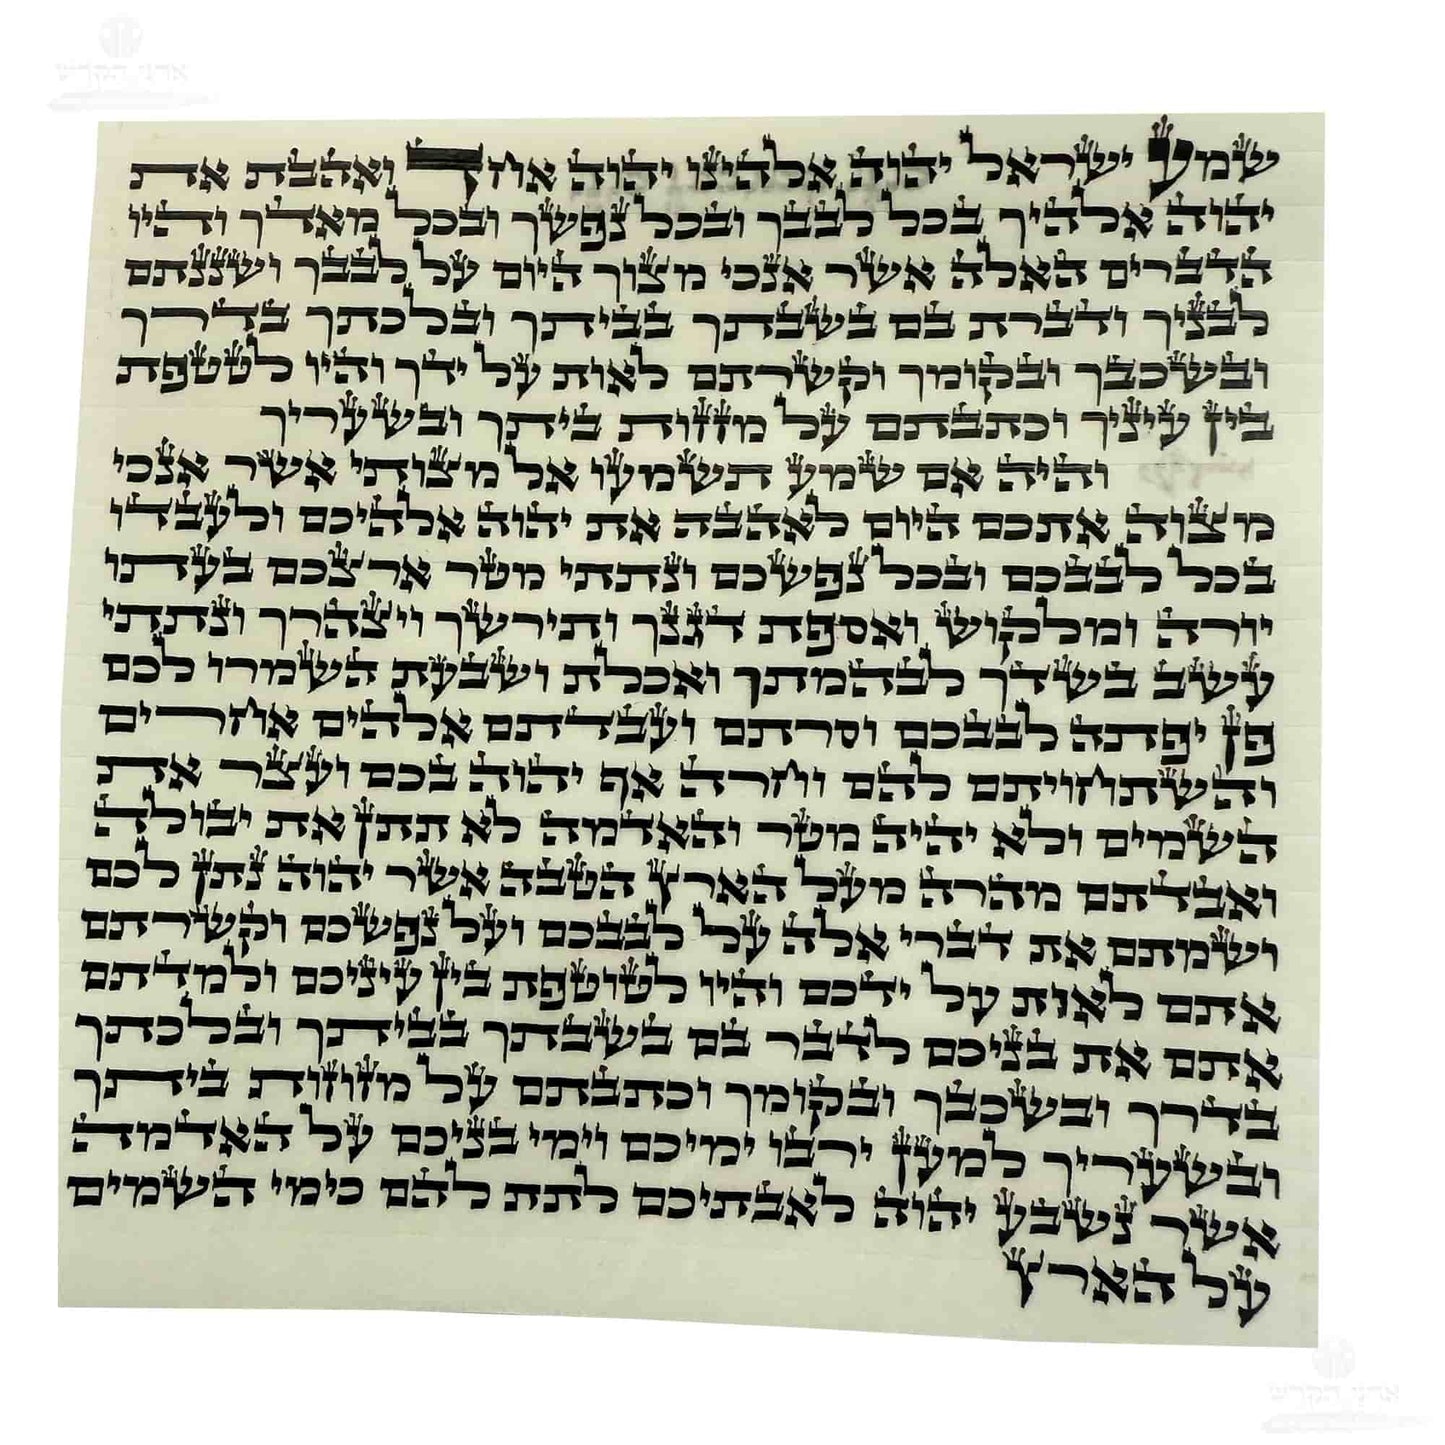 ארני הקדש
שמע ישראל יהוה אלהינו יהוה אחד ואהבת את
יהוה אלהיך בכל לבבך ובכל נפשך ובכל מאדך והיו
הדברים האלה אשר אנכי מצוך היום על לבבך ושננתם
לבניך ודברת בם בשבתך בביתך ובלכתך בדרך
ובשכבך ובקומך וקשרתם לאות על ידך והיו לטטפת
בין עיניך וכתבתם על מזזות ביתך ובשעריך
והיה אם שמע תשמעו אל מצותי אשר אנכי
מצוה אתכם היום לאהבה את יהוה אלהיכם ולעבדו
בכל לבבכם ובכל נפשכם ונתתי מטר ארצכם בעתו
יורה ומלקוש ואספת דגנך ותירשך ויצהרך ונתתי
עשב בשדך לבהמתך ואכלת ושבעת השמרו לכם
פן יפתה לבבכם וסרתם ועבדתם אלהים אחרים
והשתחויתם להם וחרה אף יהוה בכם ועצר את
השמים ולא יהיה מטר והאדמה לא תתן את יבולה
ואבדתם מהרה מעל הארץ הטבה אשר יהוה נתן לכם
ושמתם את דברי אלה על לבבכם ועל נפשכם וקשרתם
אתם לאות על ידכם והיו לטוטפת בין עיניכם ולמדתם
אתם את בניכם לדבר בם בשבתך בביתך ובלכתך
בדרך ובשכבך ובקומך וכתבתם על מזוזות ביתך
ובשעריך למען ירבו ימיכם וימי בניכם על האדמה
אשר נשבע יהוה לאבתיכם לתת להם כימי השמים
על הארץ
ארני הקדש